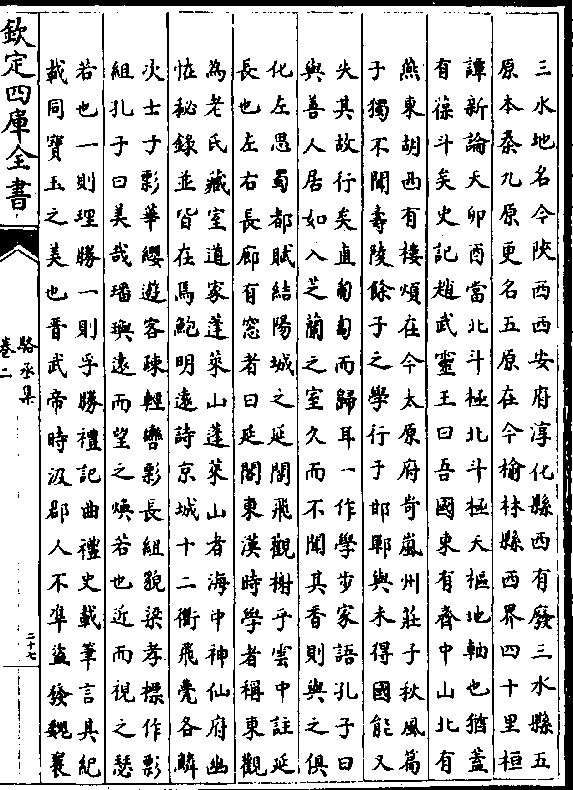 三水地名今陜西西安府淳化縣西有廢三水縣五
原本秦九原更名五原在今榆林縣西界四十里桓
譚新論天卯酉當北斗極北斗極天樞地軸也猶蓋
有葆斗矣史記趙武靈王曰吾國東有齊中山北有
燕東胡西有樓煩在今太原府岢嵐州莊子秋風篇
于獨不聞壽陵餘子之學行于邯鄲與未得國能又
失其故行矣直匍匐而歸耳一作學步家語孔子曰
與善人居如入芝蘭之室久而不聞其香則與之俱
化左思蜀都賦結陽城之延閣飛觀榭乎雲中註延
長也左右長廊有窓者曰延閣東漢時學者稱東觀
為老氏藏室道家蓬萊山蓬萊山者海中神仙府幽
恠秘錄並皆在焉鮑明遠詩京城十二衢飛甍各鱗
次士子影華纓遊客疎輕轡影長組貌梁孝標作影
組孔子曰美哉璠璵遠而望之煥若也近而視之瑟
若也一則理勝一則孚勝禮記曲禮史載筆言其紀
載同寶玉之美也晉武帝時汲郡人不凖盜發魏襄
欽定四庫全書
駱丞集
卷二
二十七